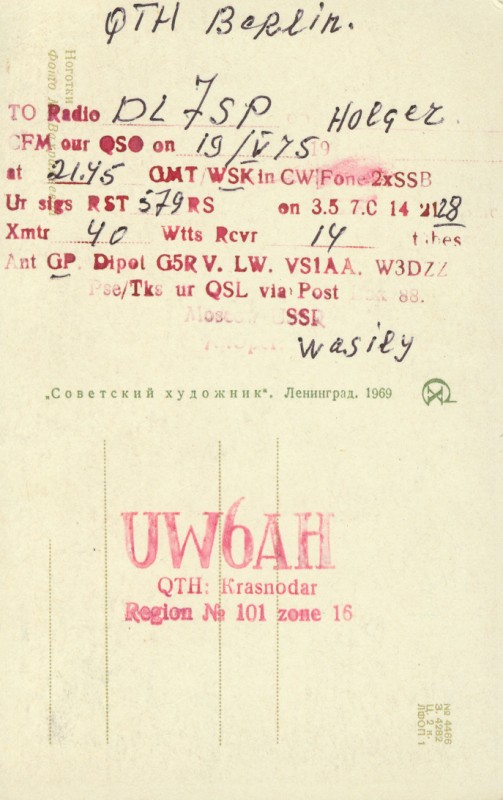 QTH Berlin.
Ноготки
Фото
TO Radio DL7SP Holger
CFM our QSO on 19/V75 19
at 21.45 GMT/WSK in CW Fone 2xSSB
Ur sigs RST 579 RS on 3.5 7.0 14 21 28
Xmtr 40 Wtts Rcvr 14 tubes
Ant GP. Dipol G5RV. LW. VS1AA. W3DZZ
Pse/Tks ur QSL via Post Box 88.
Moscow USSR
Wasily
„Советский художник“. Ленинград. 1969
UW6AH
QTH: Krasnodar
Region № 101 zone 16
№ 4466
З. 4282
Ц. 2 к.
ЛФОП 1